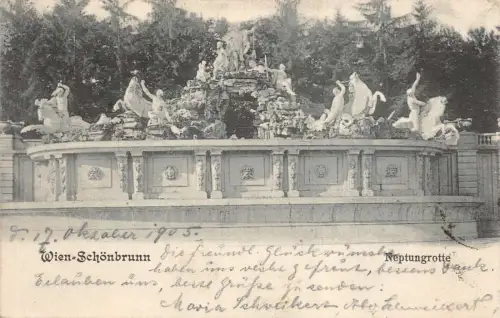 d. 17. Oktober 1905.
Die freundl. Glückwünsche
Wien-Schönbrunn
Neptungrotte
haben uns recht gefreut, bestens Dank.
Erlauben uns, beste Grüße zu senden:
Maria Schweikert